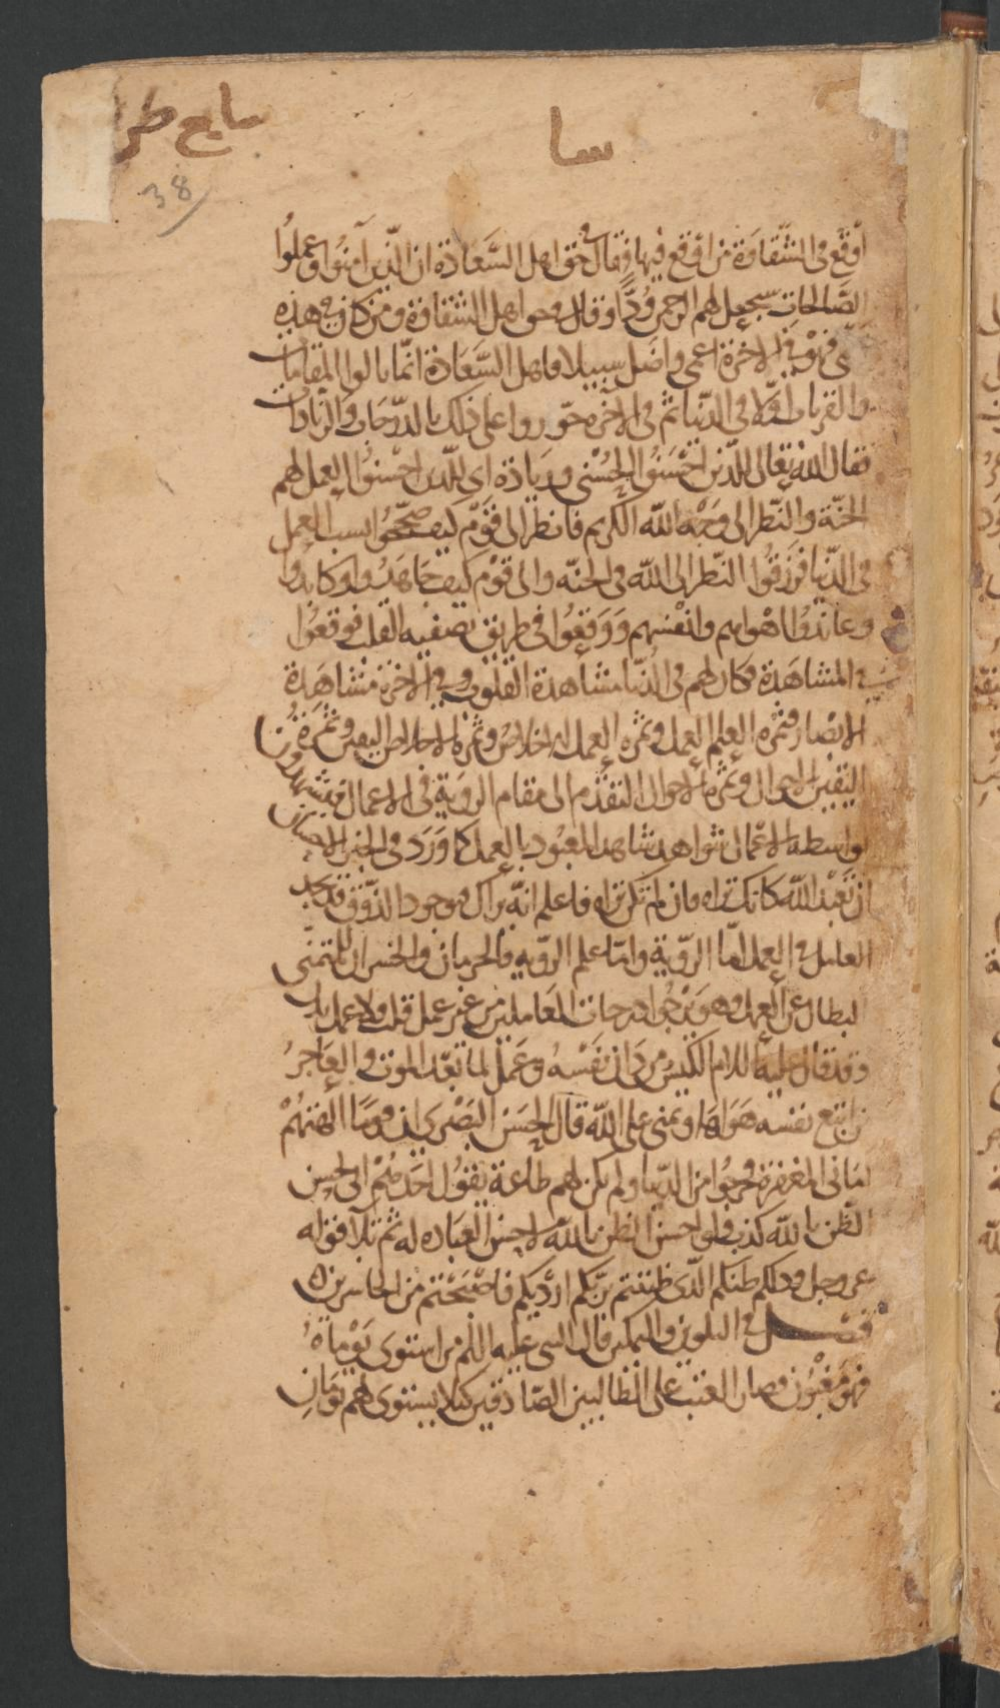 سابع طر
سا
38
أوقع في الشقاوة من اوقع فيها فقال في حق اهل السعادة ان الذين آمنوا وعملوا
الصالحات سيجعل لهم الرحمن ودا وقال في حق اهل الشقاوة ومن كان في هذه
فهو في الاخرة اعمى واضل سبيلا فاهل السعادة انما نالوا المقامات
والقربات اولا في الدنيا ثم في الآخرة جوزوا على ذلك بالدرجات والزيادات
فقال الله تعالى للذين احسنوا الحسنى وزيادة اي للذين احسنوا العمل لهم
الجنة والنظر الى وجه الله الكريم فانظر الى قوم كيف صححوا بسبب العمل
في الدنيا فرزقوا النظر الى الله في الجنة والى قوم كيف جاهدوا وكابدوا
وعاندوا اهواهم وانفسهم ووقعوا في طريق تصفية القلب فوقعوا
في المشاهدة فكان لهم في الدنيا مشاهدة القلوب وفي الاخرة مشاهدة
الابصار فثمرة العلم العمل وثمرة العمل الاخلاص وثمرة الاخلاص اليقين وثمرة
اليقين الاحوال وثمرة الاحوال التقدم الى مقام الروية في الاعمال فيشهدون
بواسطة الاعمال شواهد شاهد المعبود بالعمل كما ورد في الخبر الاحسان
ان تعبد الله كانك تراه فان لم تكن تراه فاعلم انه يراك فوجود الذوق قد يجد
العامل في العمل اما الروية واما علم الروية فالحرمان والخسران للمتمني
لبطال عن العمل وهو يرجوا درجات العاملين من غير عمل قلب ولا عمل بدن
وقد قال عليه السلام الكيس من دان نفسه وعمل لما بعد الموت والعاجز
من اتبع نفسه هواها وتمنى على الله قال الحسن البصري ان قوما الهتهم
اماني المغفرة خرجوا من الدنيا ولم يكن لهم طاعة يقول احدهم اني احسن
الظن بالله كذب فلو احسن الظن بالله لاحسن العبادة له ثم تلا قوله
عز وجل وذلكم ظنكم الذي ظننتم بربكم ارديكم فاصبحتم من الخاسرين
فصل في التلوين والتمكين قال النبي عليه السلم من استوى يوماه
فهو مغبون فصار العتب على الطالبين الصادقين كيلا يستوى لهم يومان